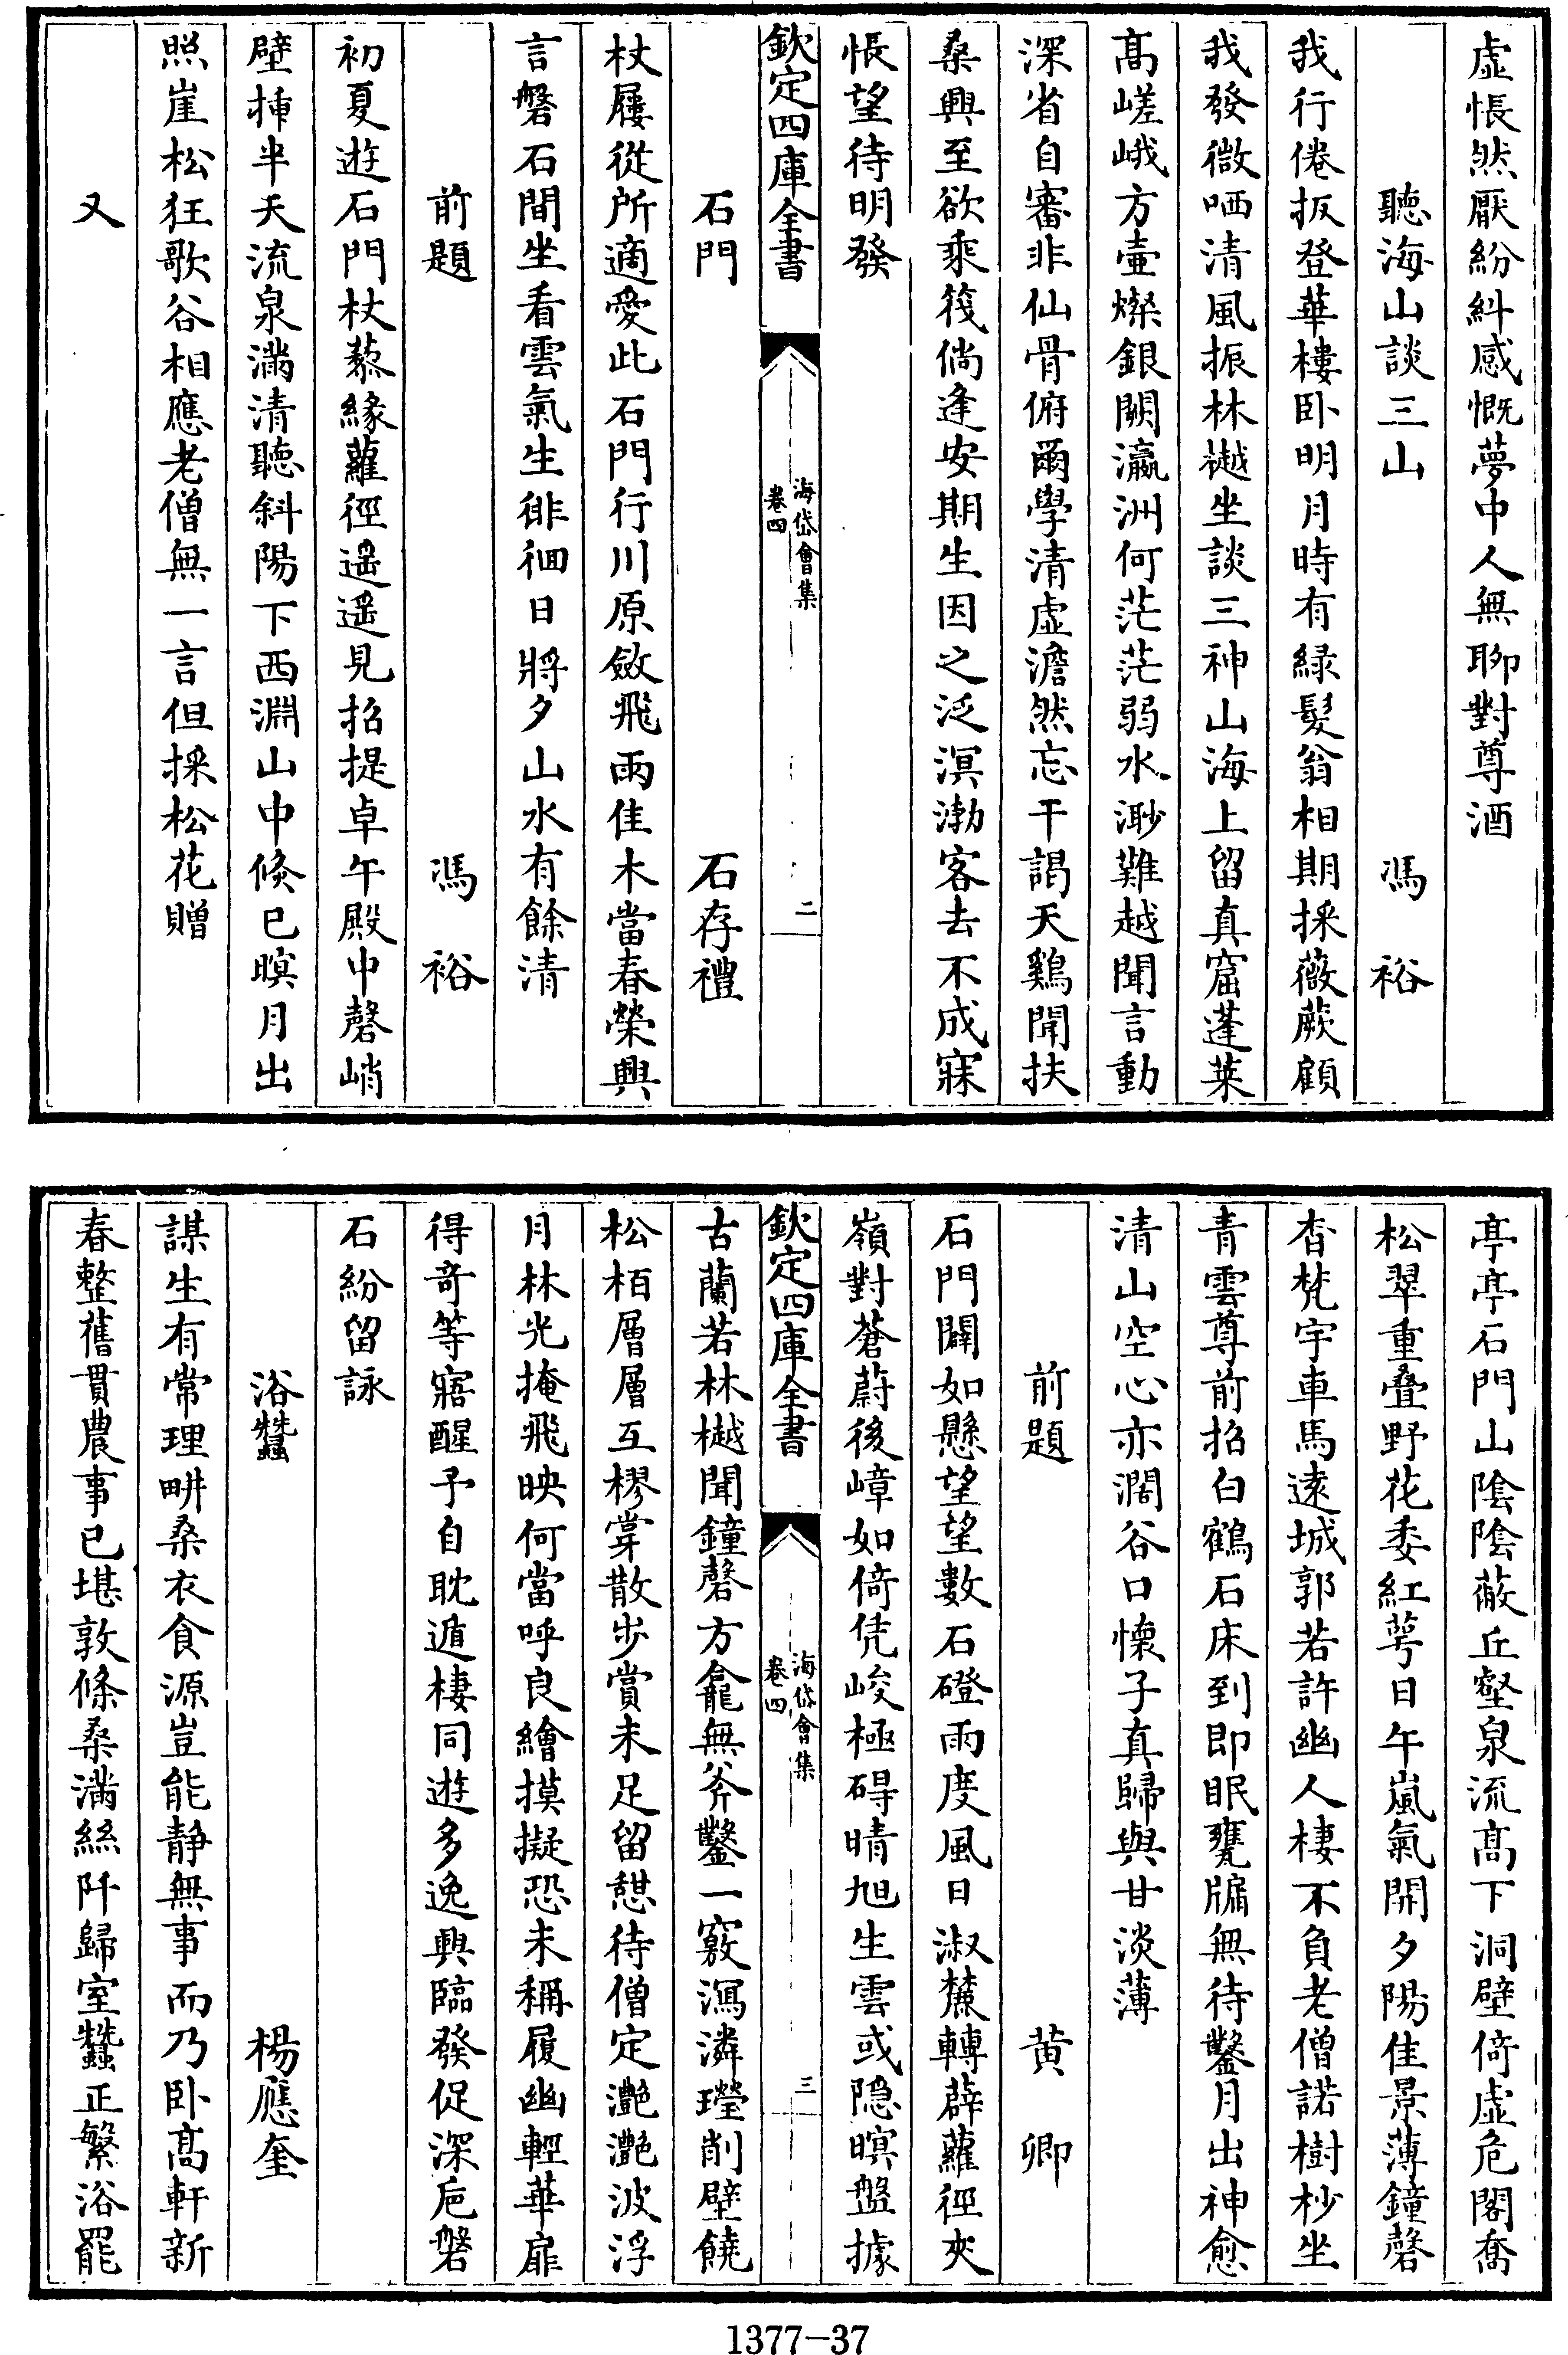 虛悵然厭紛糾感慨夢中人無聊對尊酒
聽海山談三山　馮裕
我行倦扳登華樓卧明月時有緑髮翁相期採薇蕨顧
我發微哂清風振林樾坐談三神山海上留真窟蓬萊
髙嵯峨方壷燦銀闕瀛洲何茫茫弱水渺難越聞言動
深省自審非仙骨俯爾學清虛澹然忘干謁天鷄聞扶
桑興至欲乘筏倘逢安期生因之泛溟渤客去不成寐
悵望待明發
欽定四庫全書
海岱會集
卷四
二
石門　石存禮
杖屨從所適愛此石門行川原斂飛雨佳木當春榮興
言磐石間坐看雲氣生徘徊日將夕山水有餘清
前題　馮裕
初夏遊石門杖藜緣蘿徑遥遥見招提卓午殿中磬峭
壁揷半天流泉滿清聽斜陽下西淵山中倐已暝月出
照崖松狂歌谷相應老僧無一言但採松花贈
又
亭亭石門山陰陰蔽丘壑泉流髙下洞壁倚虛危閣喬
松翠重疊野花委紅萼日午嵐氣開夕陽佳景薄鐘磬
杳梵宇車馬逺城郭若許幽人棲不負老僧諾樹杪坐
青雲尊前招白鶴石床到即眠甕牖無待鑿月出神愈
清山空心亦濶谷口懷子真歸與甘淡薄
前題　黄卿
石門闢如懸望望數石磴雨度風日淑麓轉薜蘿徑夾
嶺對蒼蔚後嶂如倚凭峻極碍晴旭生雲或隠暝盤據
欽定四庫全書
海岱會集
卷四
三
古蘭若林樾聞鐘磬方龕無斧鑿一竅瀉潾瑩削壁饒
松栢層層互樛掌散歩賞未足留憇待僧定灔灔波浮
月林光掩飛映何當呼良繪摸擬恐未稱履幽輕華扉
得奇等寤醒予自耽遁棲同遊多逸興臨發促深巵磐
石紛留詠
浴蠶　楊應奎
謀生有常理畊桑衣食源豈能静無事而乃卧髙軒新
春整舊貫農事已堪敦條桑滿絲阡歸室蠶正繁浴罷
1377-37